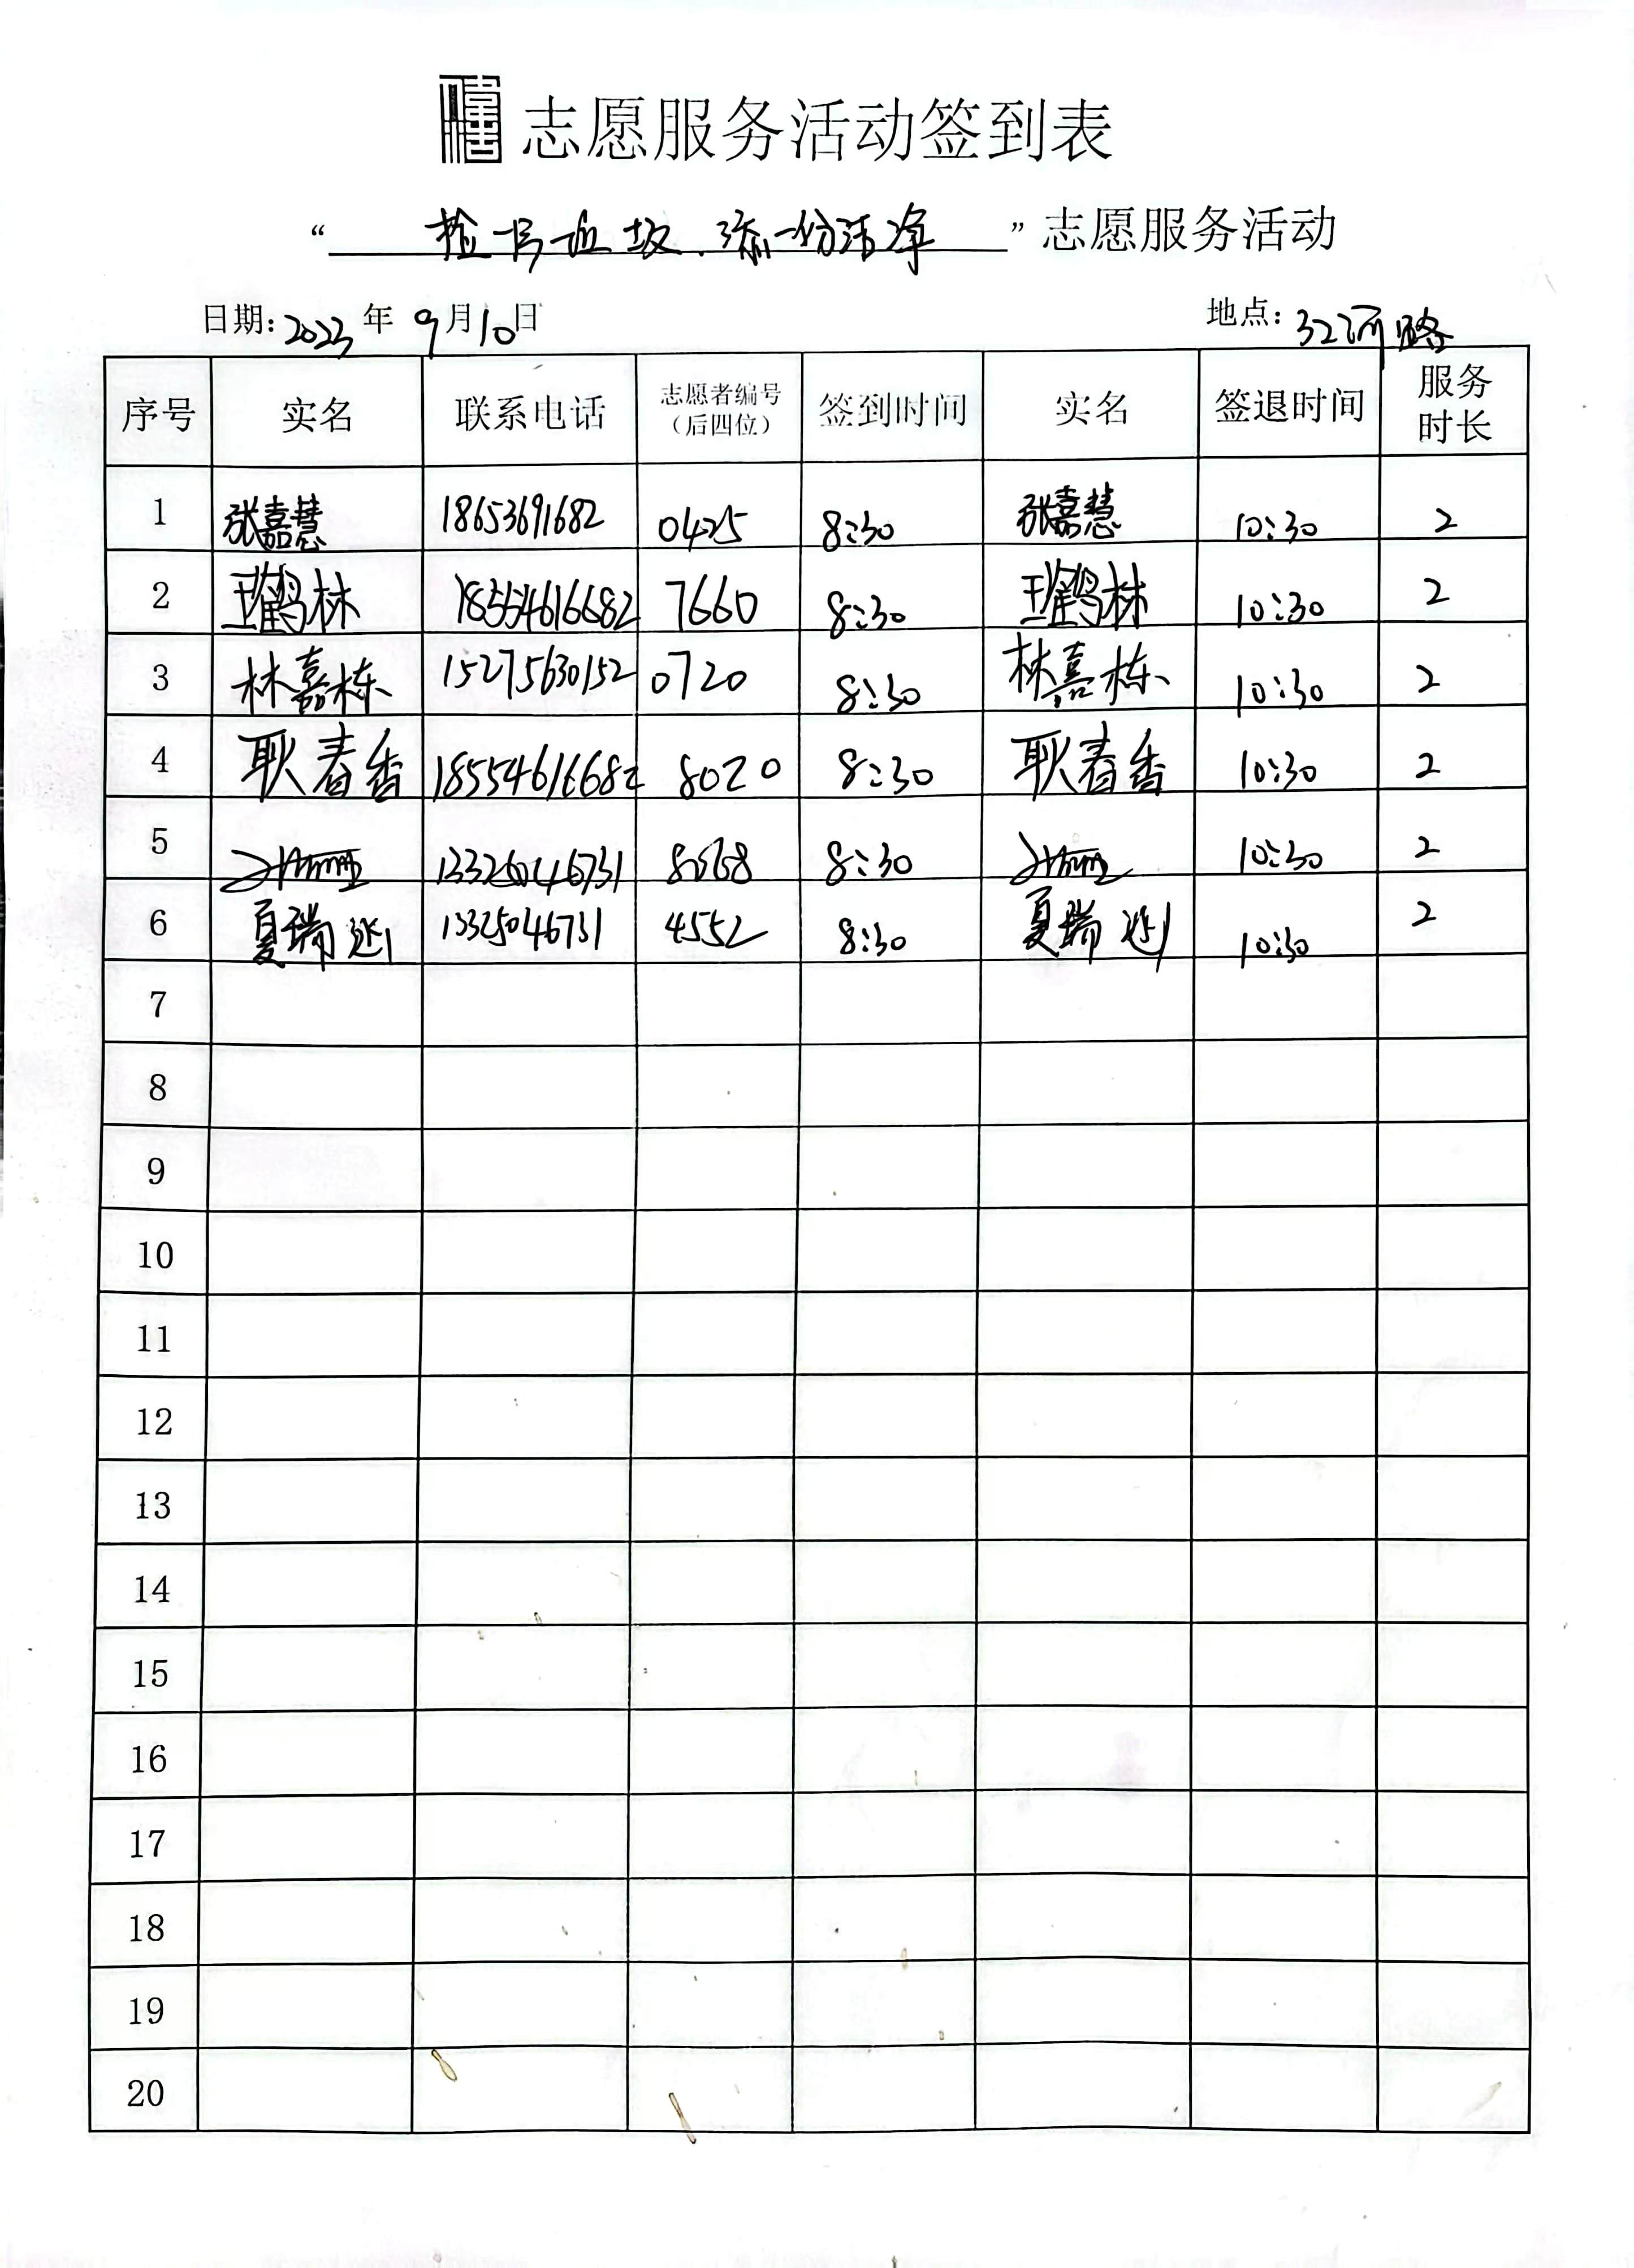 志愿服务活动签到表
“捡一片垃圾、添一份洁净”志愿服务活动
日期:2023年9月10日 地点:
序号 实名 联系电话 志愿者编号(后四位) 签到时间 实名 签退时间 服务时长
1 张嘉慧 18653691682 0425 8:30 张嘉慧 10:30 2
2 王鹤林 18554616682 7660 8:30 王鹤林 10:30 2
3 林嘉栋 15275630152 0720 8:30 林嘉栋 10:30 2
4 耿春香 18554616682 8020 8:30 耿春香 10:30 2
5 8:30 10:30 2
6 夏瑞 13325046731 4552 8:30 夏瑞 10:30 2
7
8
9
10
11
12
13
14
15
16
17
18
19
20